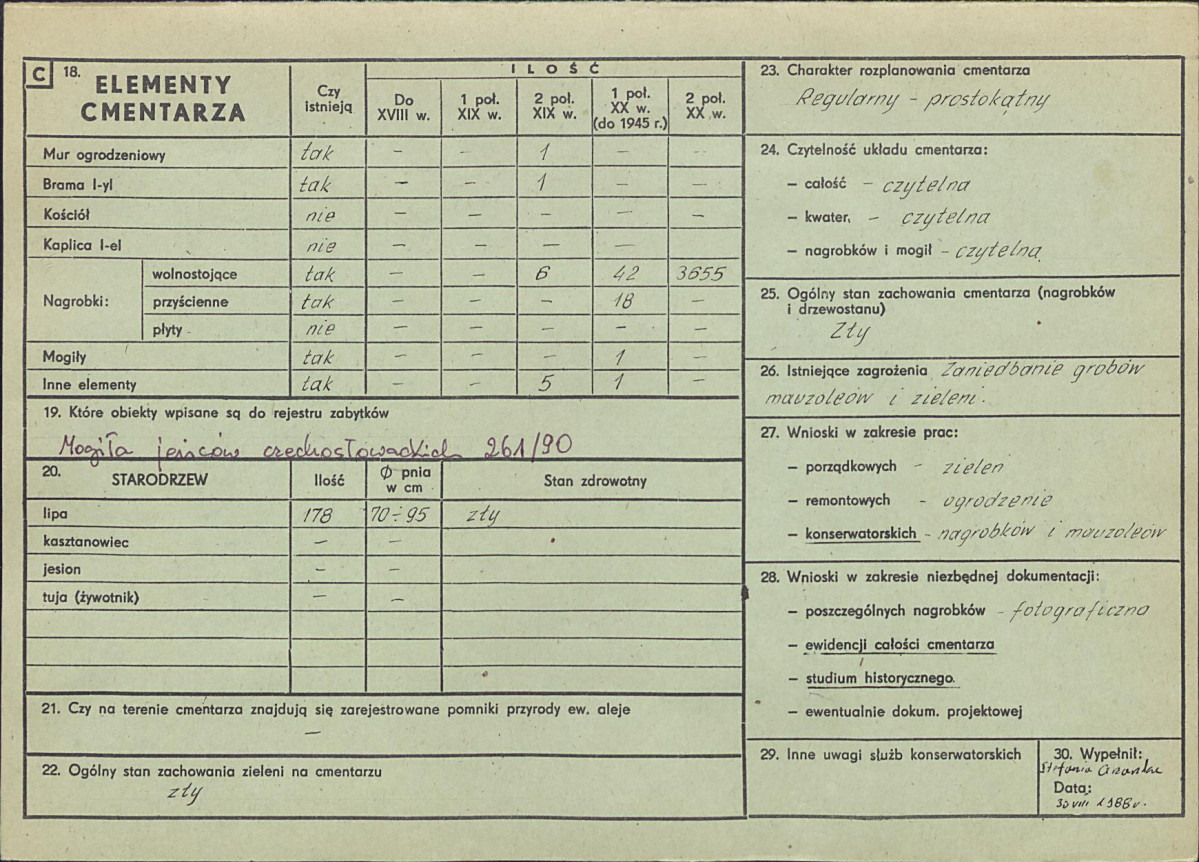 C 18. ELEMENTY CMENTARZA | Czy istnieją | ILOŚĆ
Do XVIII w. | 1 poł. XIX w. | 2 poł. XIX w. | 1 poł. XX w. (do 1945 r.) | 2 poł. XX w.
Mur ogrodzeniowy | tak | – | – | 1 | – | –
Brama I-yl | tak | – | – | 1 | – | –
Kościół | nie | – | – | – | – | –
Kaplica I-el | nie | – | – | – | –
Nagrobki: wolnostojące | tak | – | – | 6 | 42 | 3655
przyścienne | tak | – | – | – | 18 | –
płyty | nie | – | – | – | – | –
Mogiły | tak | – | – | – | 1 | –
Inne elementy | tak | – | – | 5 | 1 | –
19. Które obiekty wpisane są do rejestru zabytków
Mogiła jeńców czechosłowackich 261/90
20. STARODRZEW | Ilość | Ø pnia w cm | Stan zdrowotny
lipa | 178 | 70÷95 | zły
kasztanowiec | – | –
jesion | – | –
tuja (żywotnik) | – | –
21. Czy na terenie cmentarza znajdują się zarejestrowane pomniki przyrody ew. aleje
–
22. Ogólny stan zachowania zieleni na cmentarzu
zły
23. Charakter rozplanowania cmentarza
Regularny – prostokątny
24. Czytelność układu cmentarza:
– całość – czytelna
– kwater, – czytelna
– nagrobków i mogił – czytelna
25. Ogólny stan zachowania cmentarza (nagrobków
i drzewostanu)
Zły
26. Istniejące zagrożenia Zaniedbanie grobów
mauzoleów i zieleni.
27. Wnioski w zakresie prac:
– porządkowych – zieleń
– remontowych – ogrodzenie
– konserwatorskich – nagrobków i mauzoleów
28. Wnioski w zakresie niezbędnej dokumentacji:
– poszczególnych nagrobków – fotograficzna
– ewidencji całości cmentarza
– studium historycznego.
– ewentualnie dokum. projektowej
29. Inne uwagi służb konserwatorskich
30. Wypełnił:
Stefania
Data:
30 VIII 1988 r.